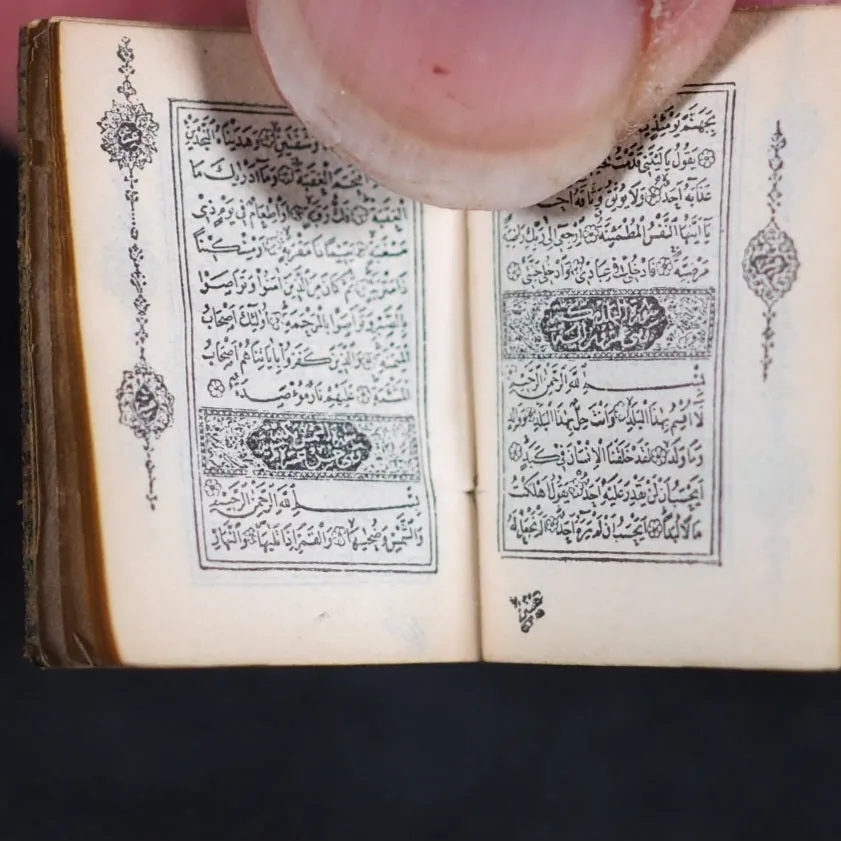 بِجَهَنَّمَ يَوْمَئِذٍ
يَقُولُ يَا لَيْتَنِي قَدَّمْتُ
عَذَابَهُ أَحَدٌ وَلَا يُوثِقُ وَثَاقَهُ أَحَدٌ
يَا أَيَّتُهَا النَّفْسُ الْمُطْمَئِنَّةُ ارْجِعِي إِلَى رَبِّكِ رَاضِيَةً
مَرْضِيَّةً فَادْخُلِي فِي عِبَادِي وَادْخُلِي جَنَّتِي
سورة البلد
بِسْمِ اللَّهِ الرَّحْمَنِ الرَّحِيمِ
لَا أُقْسِمُ بِهَذَا الْبَلَدِ وَأَنْتَ حِلٌّ بِهَذَا الْبَلَدِ وَوَالِدٍ
وَمَا وَلَدَ لَقَدْ خَلَقْنَا الْإِنْسَانَ فِي كَبَدٍ
أَيَحْسَبُ أَنْ لَنْ يَقْدِرَ عَلَيْهِ أَحَدٌ يَقُولُ أَهْلَكْتُ
مَالًا لُبَدًا أَيَحْسَبُ أَنْ لَمْ يَرَهُ أَحَدٌ أَلَمْ نَجْعَلْ لَهُ
وَشَفَتَيْنِ وَهَدَيْنَاهُ النَّجْدَيْنِ
اقْتَحَمَ الْعَقَبَةَ وَمَا أَدْرَاكَ مَا
الْعَقَبَةُ فَكُّ رَقَبَةٍ أَوْ إِطْعَامٌ فِي يَوْمٍ ذِي
مَسْغَبَةٍ يَتِيمًا ذَا مَقْرَبَةٍ أَوْ مِسْكِينًا
ذَا مَتْرَبَةٍ ثُمَّ كَانَ مِنَ الَّذِينَ آمَنُوا وَتَوَاصَوْا
بِالصَّبْرِ وَتَوَاصَوْا بِالْمَرْحَمَةِ أُولَئِكَ أَصْحَابُ
الْمَيْمَنَةِ وَالَّذِينَ كَفَرُوا بِآيَاتِنَا هُمْ أَصْحَابُ
الْمَشْأَمَةِ عَلَيْهِمْ نَارٌ مُؤْصَدَةٌ
سورة الشمس
بِسْمِ اللَّهِ الرَّحْمَنِ الرَّحِيمِ
وَالشَّمْسِ وَضُحَيهَا وَالْقَمَرِ إِذَا تَلَيهَا وَالنَّهَارِ